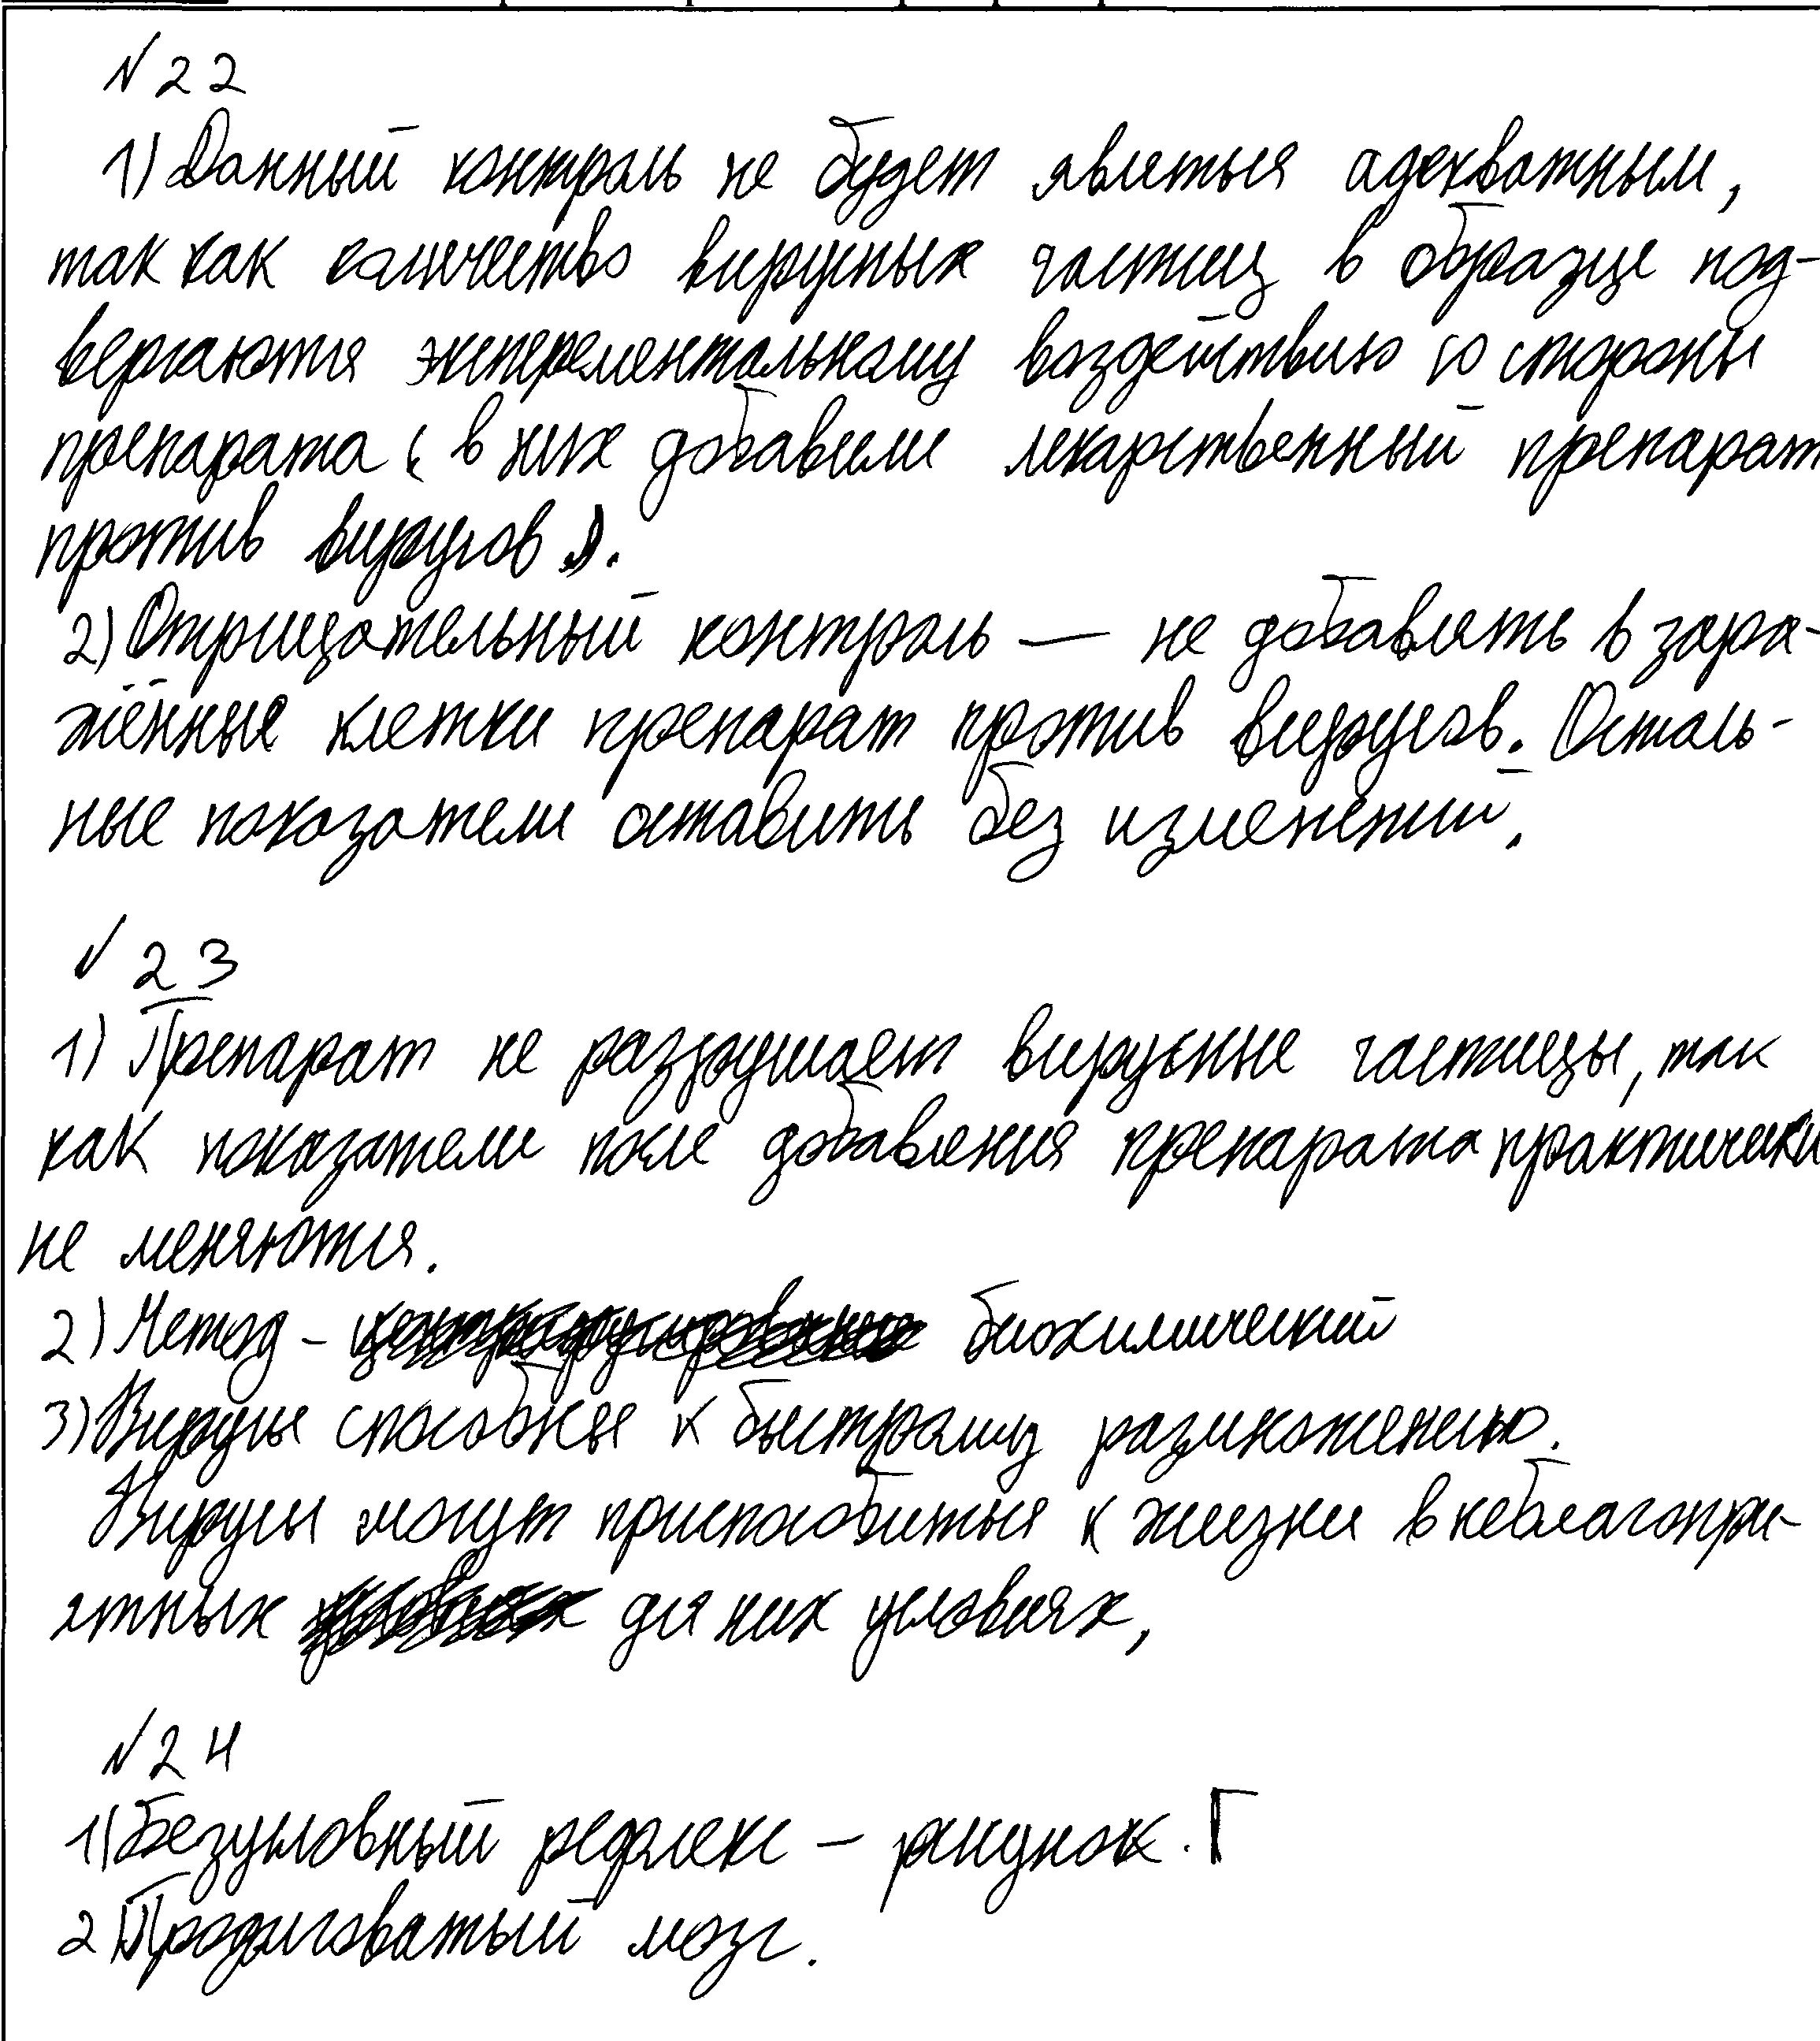 № 22
1) Данный контроль не будет являться адекватным,
так как количество вирусных частиц в образце под-
вергаются эксперементальному воздействию со стороны
препарата ( в них добавили лекарственный препарат
против вирусов ).
2) Отрицательный контроль — не добавлять в зара-
жённые клетки препарат против вирусов. Осталь-
ные показатели оставить без изменений.
№ 23
1) Препарат не разрушает вирусные частицы, так
как показатели после добавления препарата практически
не меняются.
2) Метод - биохимический
3) Вирусы способны к быстрому размножению.
Вирусы могут приспособиться к жизни в неблагопри-
ятных для них условиях,
№ 24
1) Безусловный рефлекс — рисунок. Г
2) Продолговатый мозг.